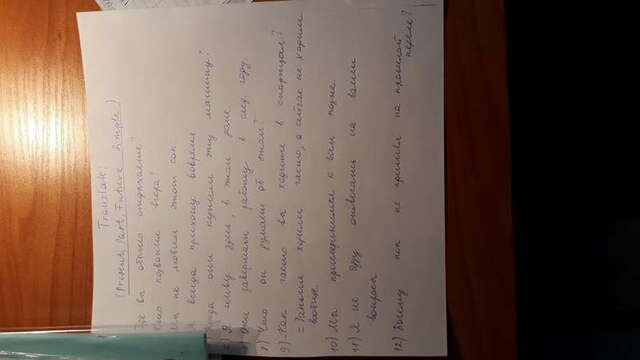 Translate:
(Present, Past, Future Simple)
Где вы обычно отдыхаете?
позвонил вчера?
Мы не любим этот сок
Я всегда прихожу вовремя
они купили эту машину?
6) Я живу здесь, в этом доме
Они завершат работу в след. году
8) Что он думает об этом?
9) Как часто вы ходите в спортзал?
= Раньше ходили часто, а сейчас не ходим
вообще
10) Мы присоединимся к вам позже
11) Я не буду отвечать на ваши
вопросы
12) Почему не пришёл на прошлой
неделе?